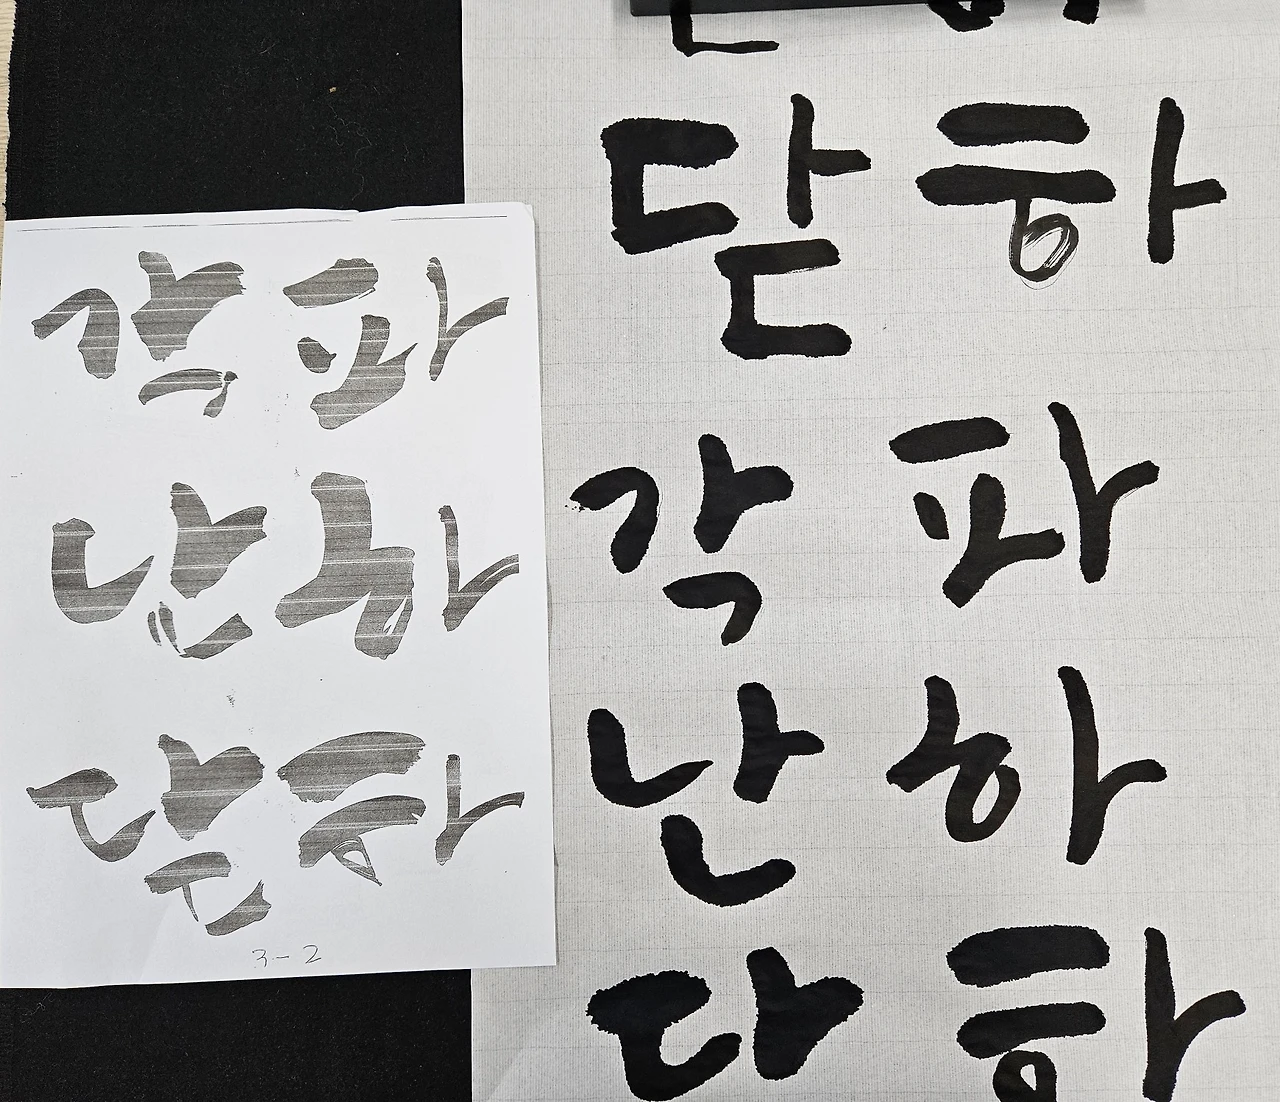 각 파
난 하
닫 하
3-2
닫 하
각 파
난 하
다 하